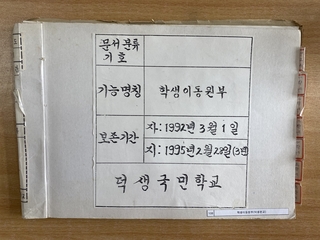 문서분류
기호
기능명칭 학생이동원부
보존기간 자: 1992년 3월 1일
지: 1995년 2월 28일(3년)
덕생국민학교